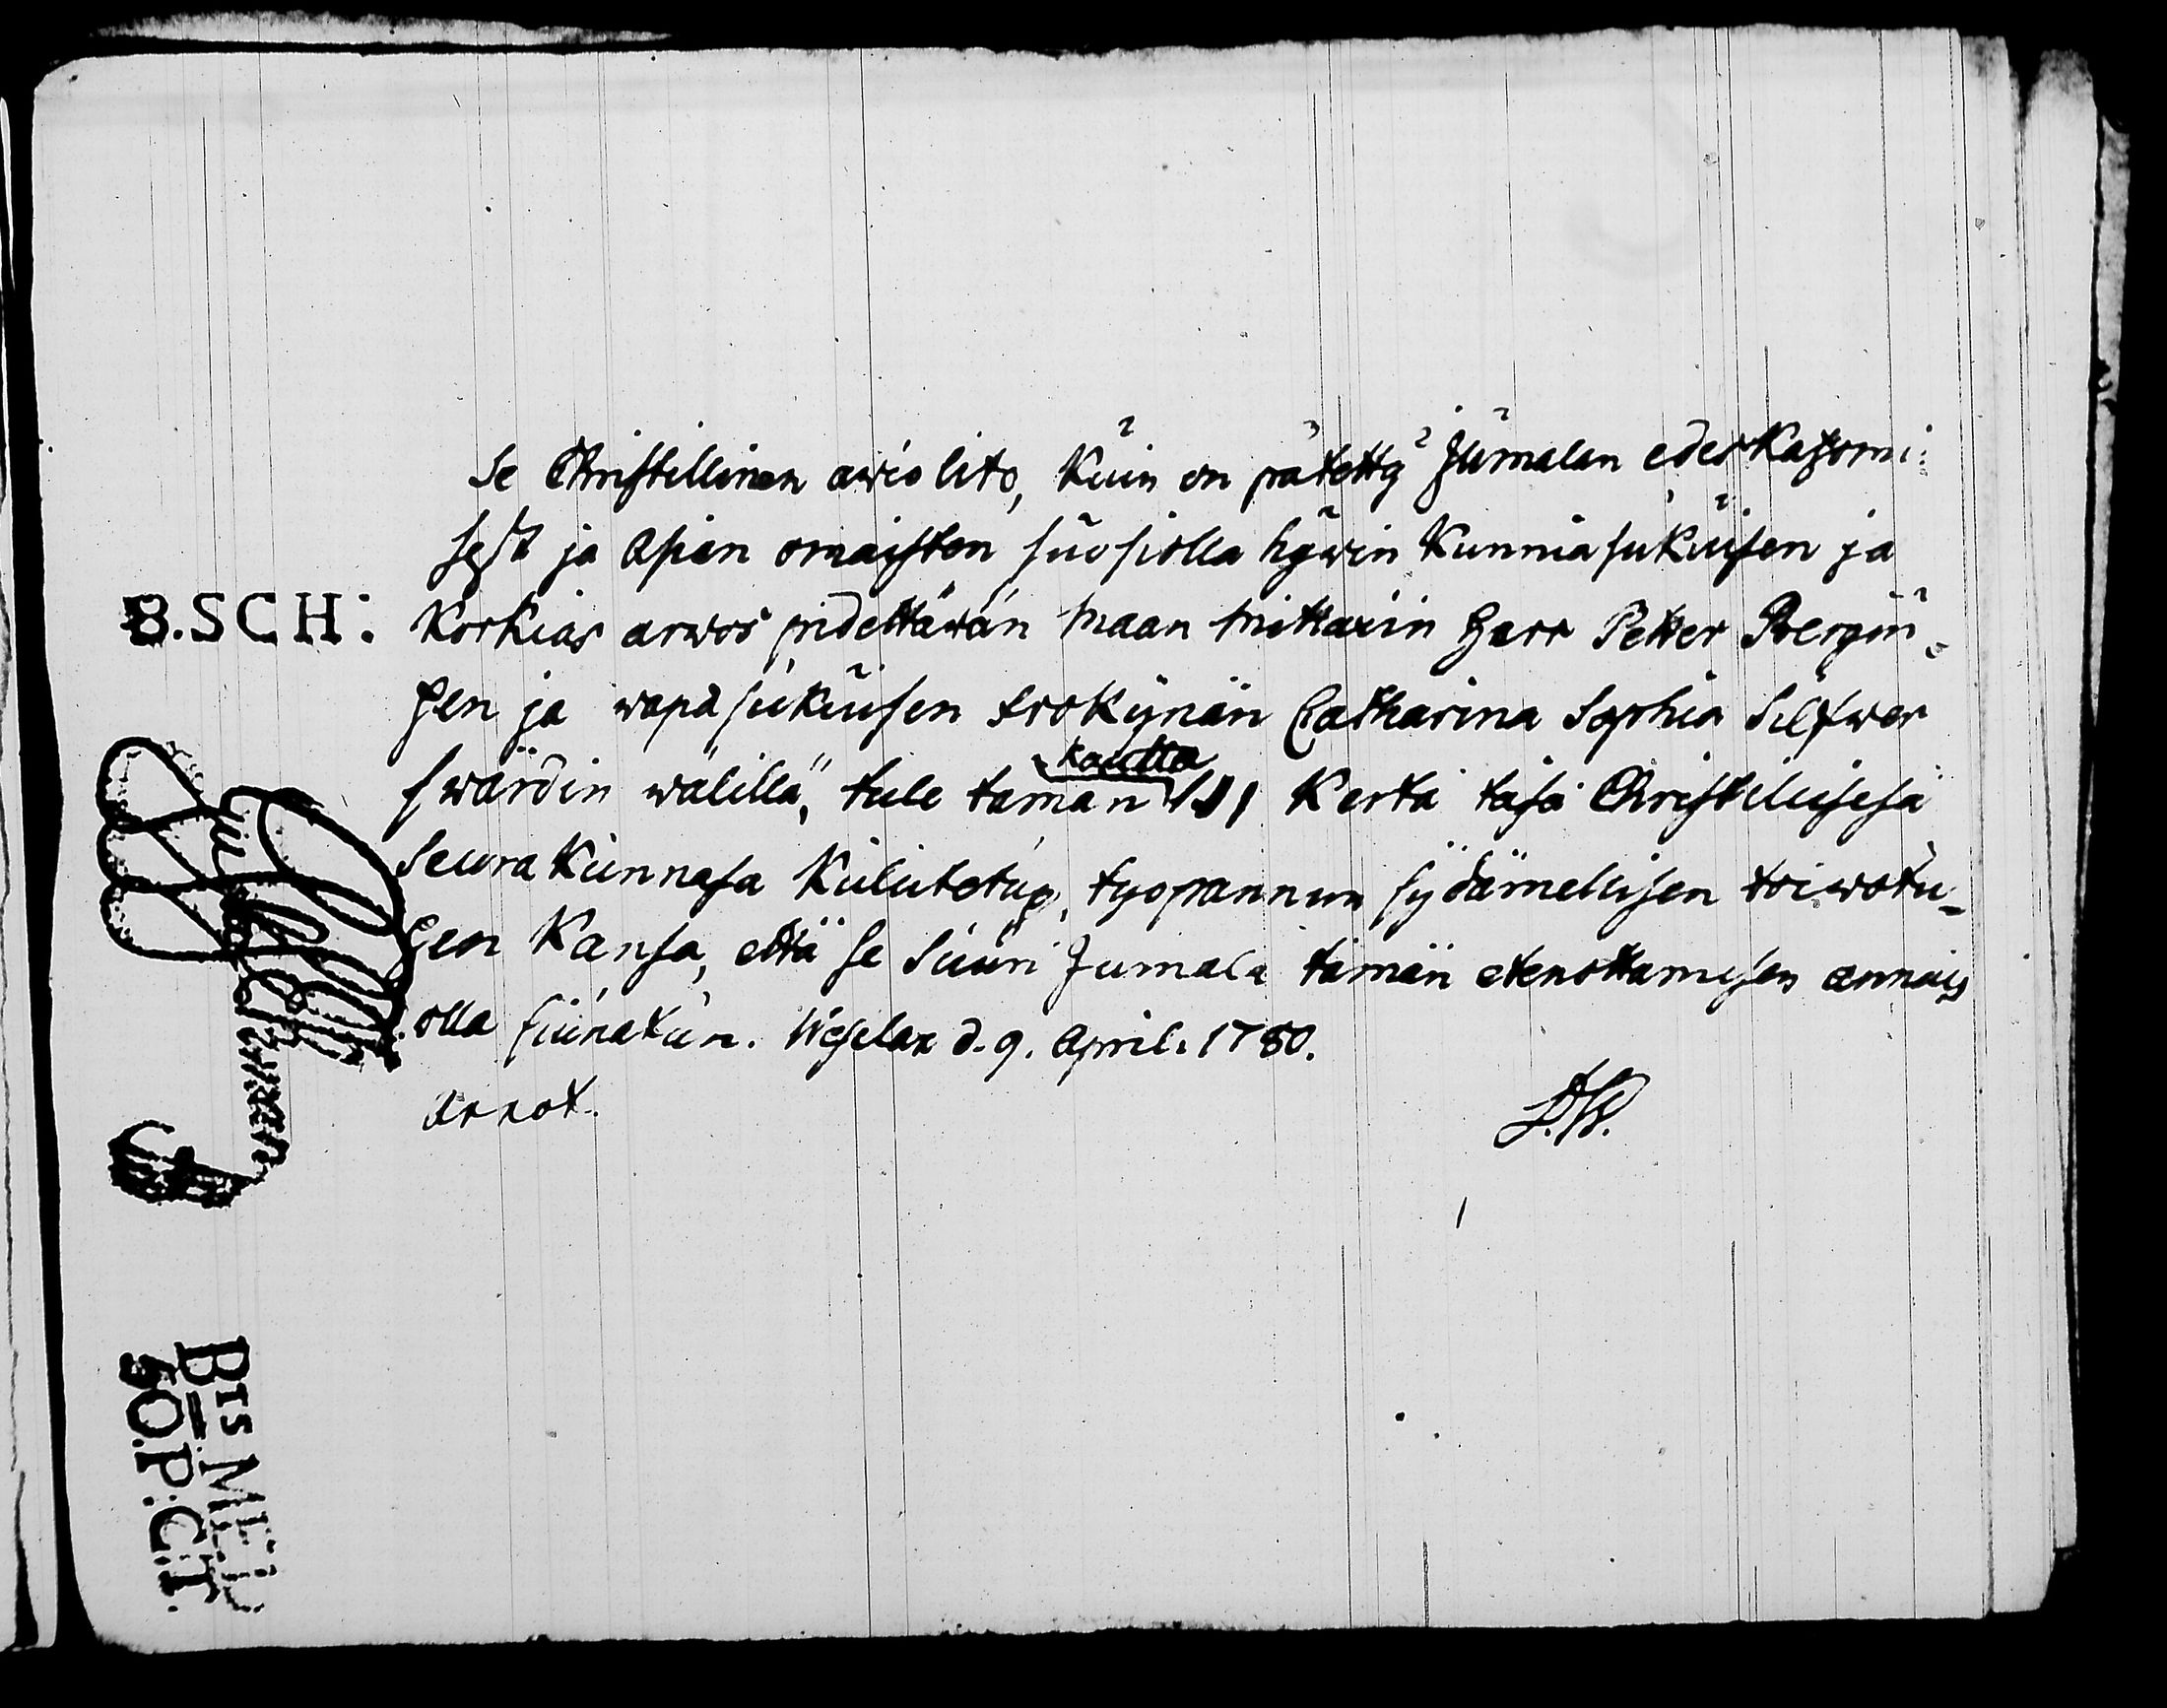 Se Christillinen awio lito, kuin on pätetty Jumalan edeskatzomi:
sest ja Asian omaisten suosiolla hywin kunnia sukuisen ja
B.SCH: korkias arwos pidettäwän Maan Mittarin Herr Petter Bergin¬
gen ja wapa sukuisen frökynän Catharina Sophia Silfwer
swärdin wälillä, tule tämän kautta III kerta täsä Christilisesä
seurakunnasa kulutetux, sydämelisen toiwotu¬
xen kansa, että se Suuri Jumala tämän etenottamisen annais
olla siunatun. Wesilax d. 9. April. 1780.
BIS MEL
B
SO.P.C.I.